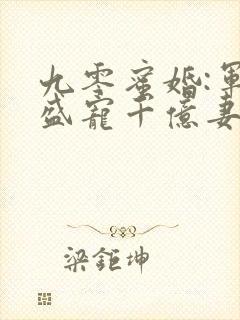 九零蜜婚:軍
盛寵千億妻
梁鉅坤